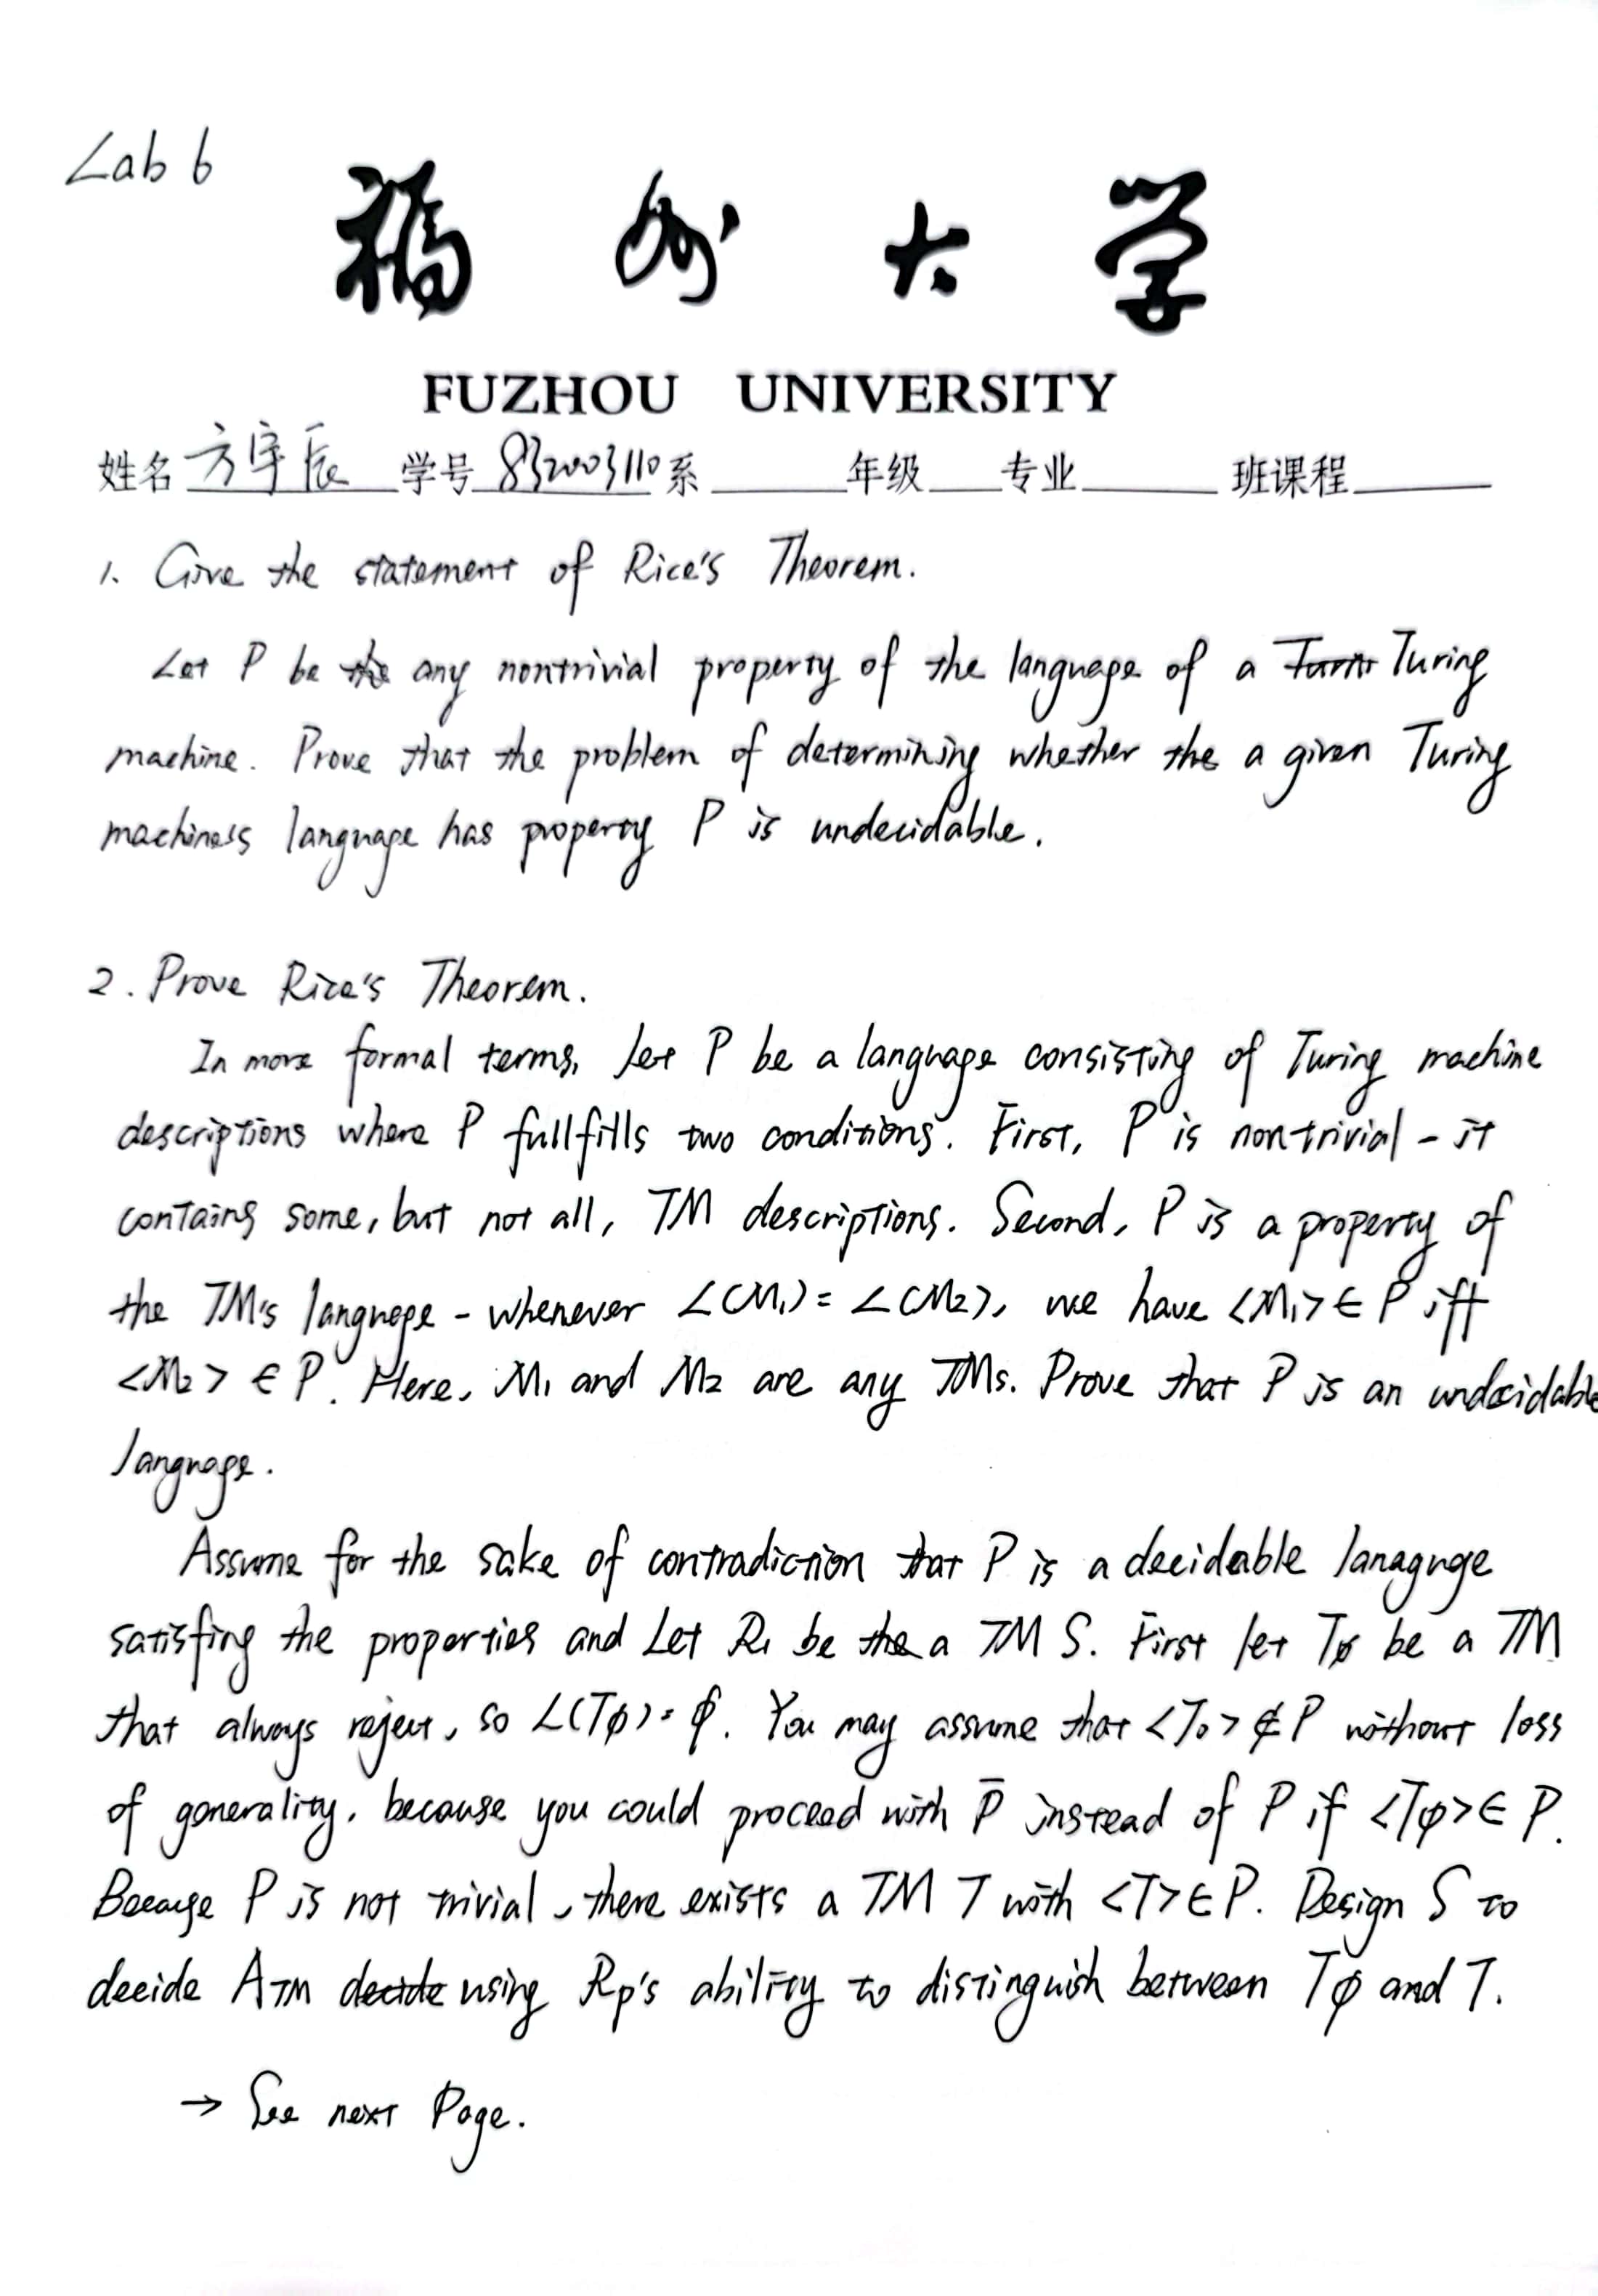 Lab 6
福州大学
FUZHOU UNIVERSITY
姓名 方宇辰 学号 832003110 系 年级 专业 班课程
1. Give the statement of Rice's Theorem.
Let P be the any nontrivial property of the language of a Turing
machine. Prove that the problem of determining whether the a given Turing
machine's language has property P is undecidable.
2. Prove Rice's Theorem.
In more formal terms, let P be a language consisting of Turing machine
descriptions where P fullfills two conditions. First, P is nontrivial - it
contains some, but not all, TM descriptions. Second, P is a property of
the TM's language - whenever L(M₁) = L(M₂), we have <M₁> ∈ P iff
<M₂> ∈ P. Here, M₁ and M₂ are any TMs. Prove that P is an undecidable
language.
Assume for the sake of contradiction that P is a decidable lanaguge
satisfing the properties and Let R₁ be the a TM S. First let Tφ be a TM
that always reject, so L(Tφ) = φ. You may assume that <T₀> ∉ P without loss
of generality, because you could proceed with P̄ instead of P if <Tφ> ∈ P.
Because P is not trivial, there exists a TM T with <T> ∈ P. Design S to
decide ATM decide using Rp's ability to distinguish between Tφ and T.
→ See next Page.